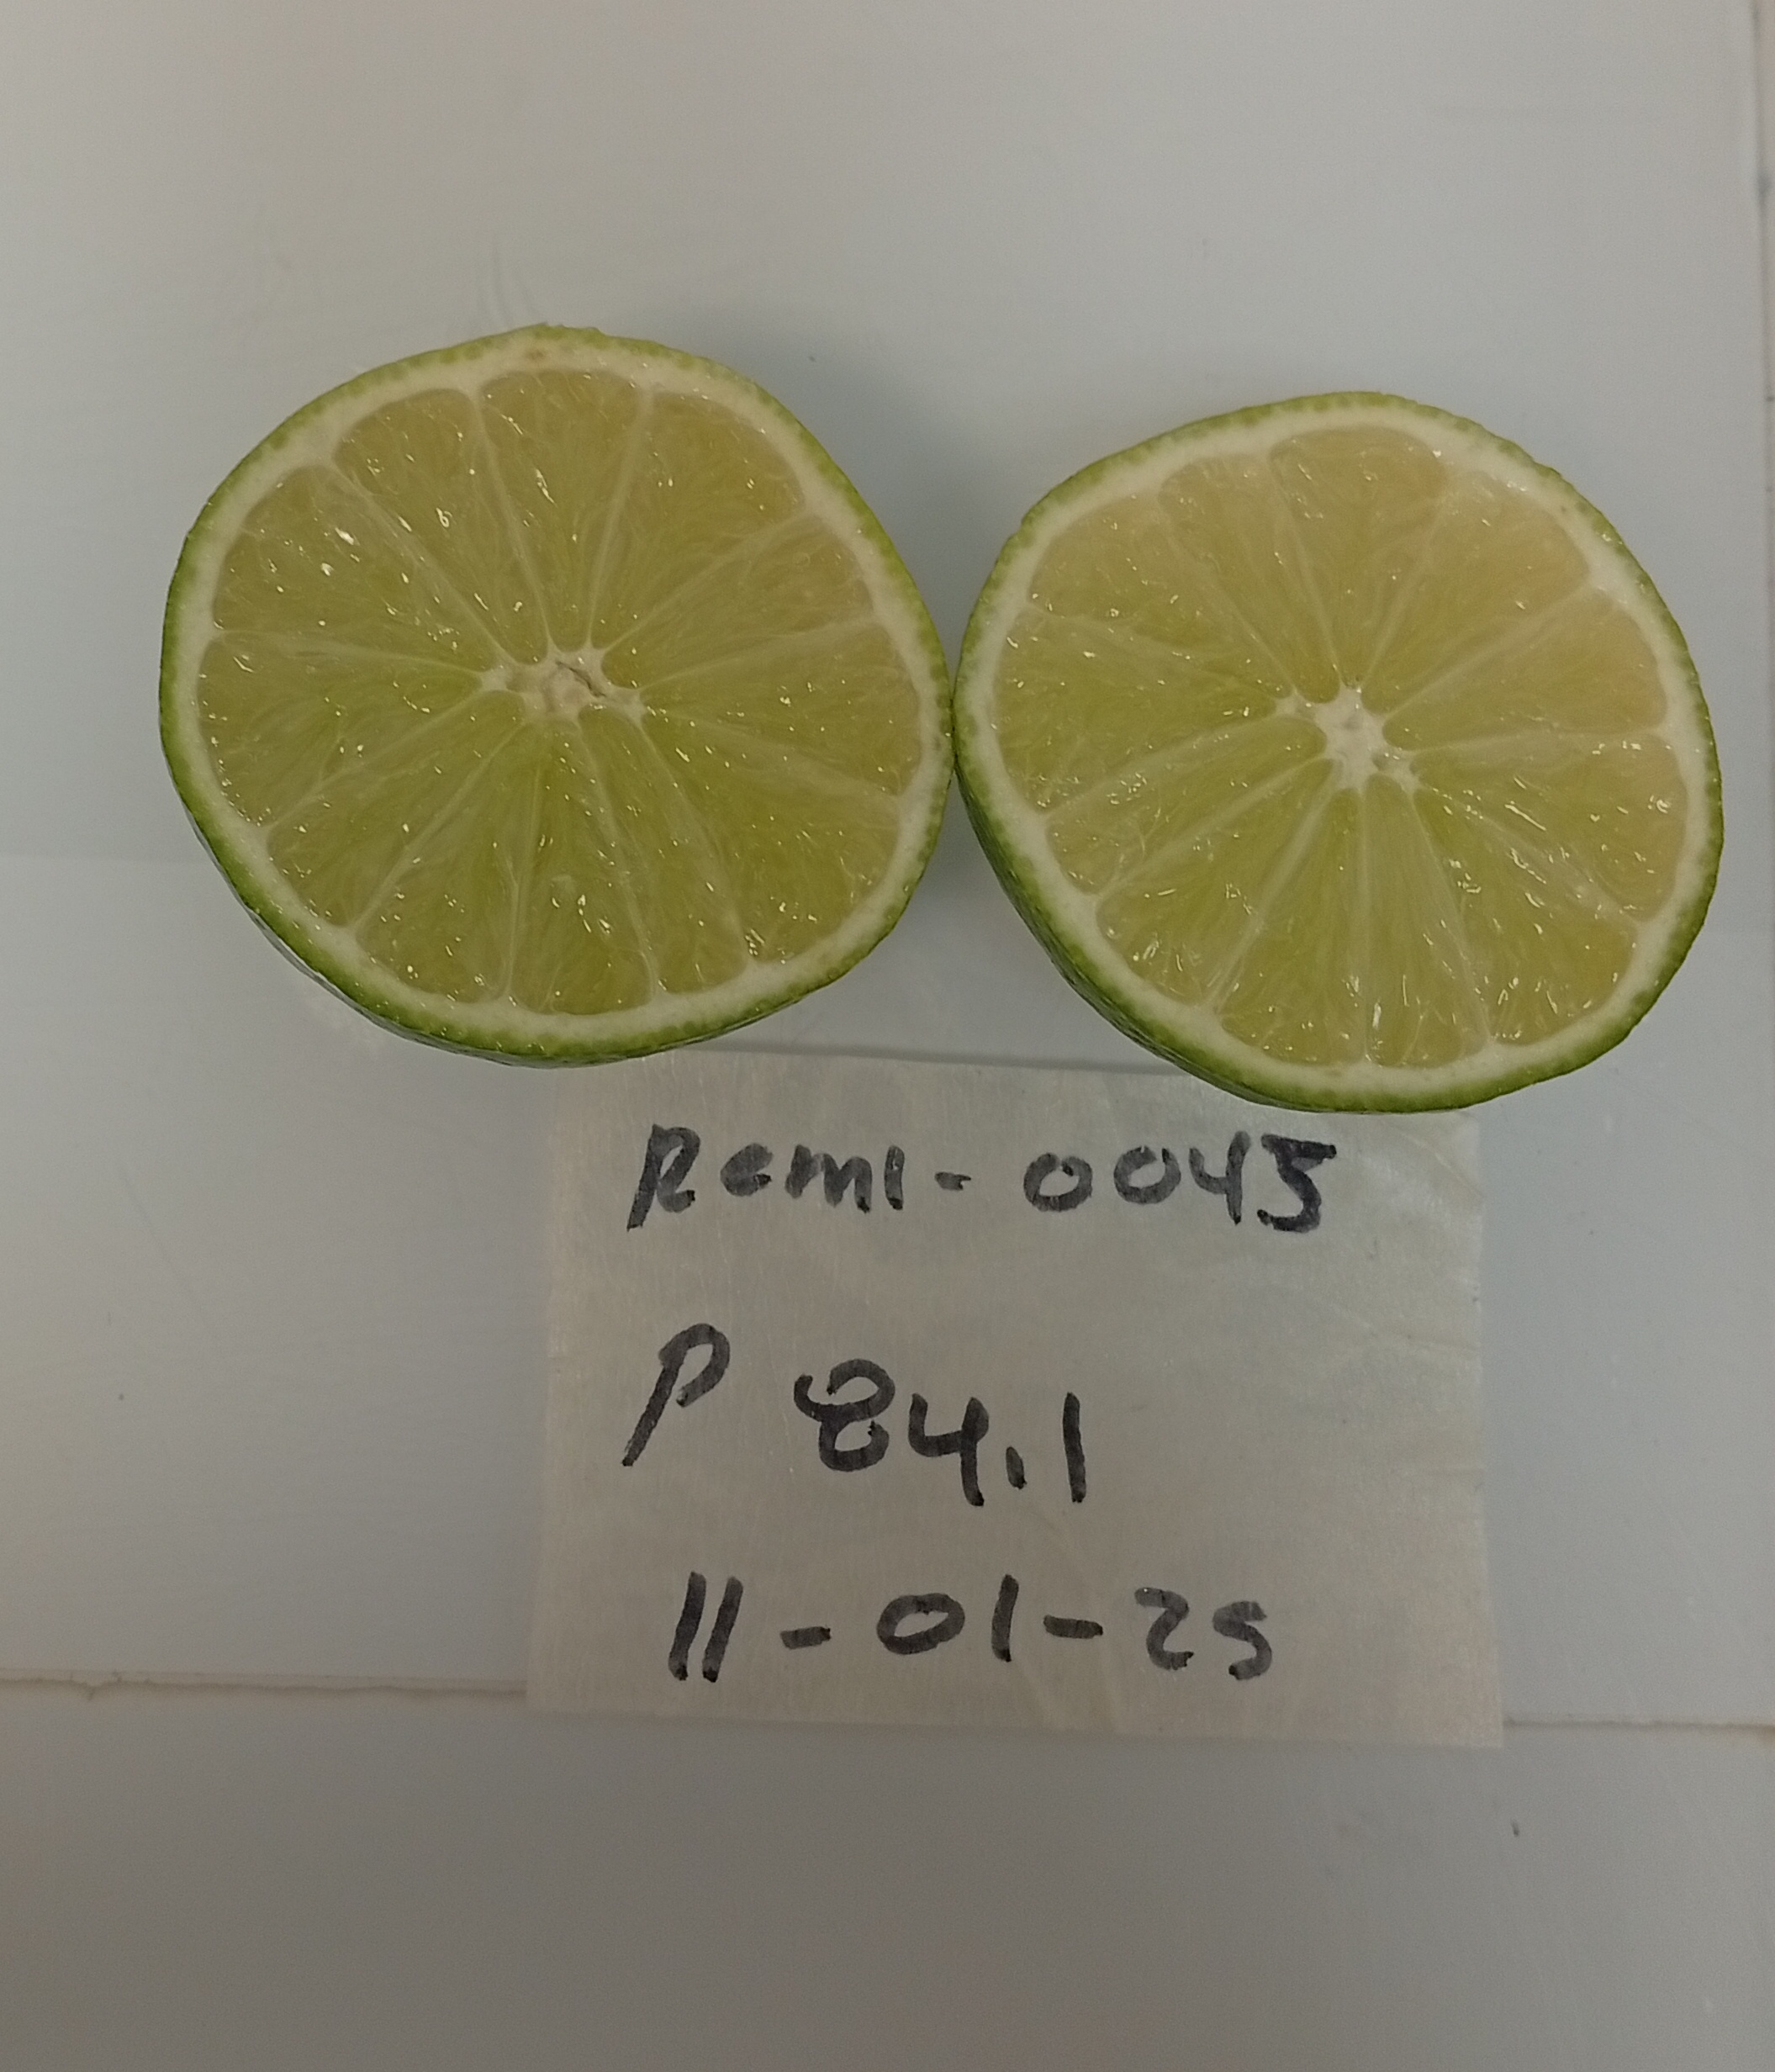 Remi-0045
P 84.1
11-01-25